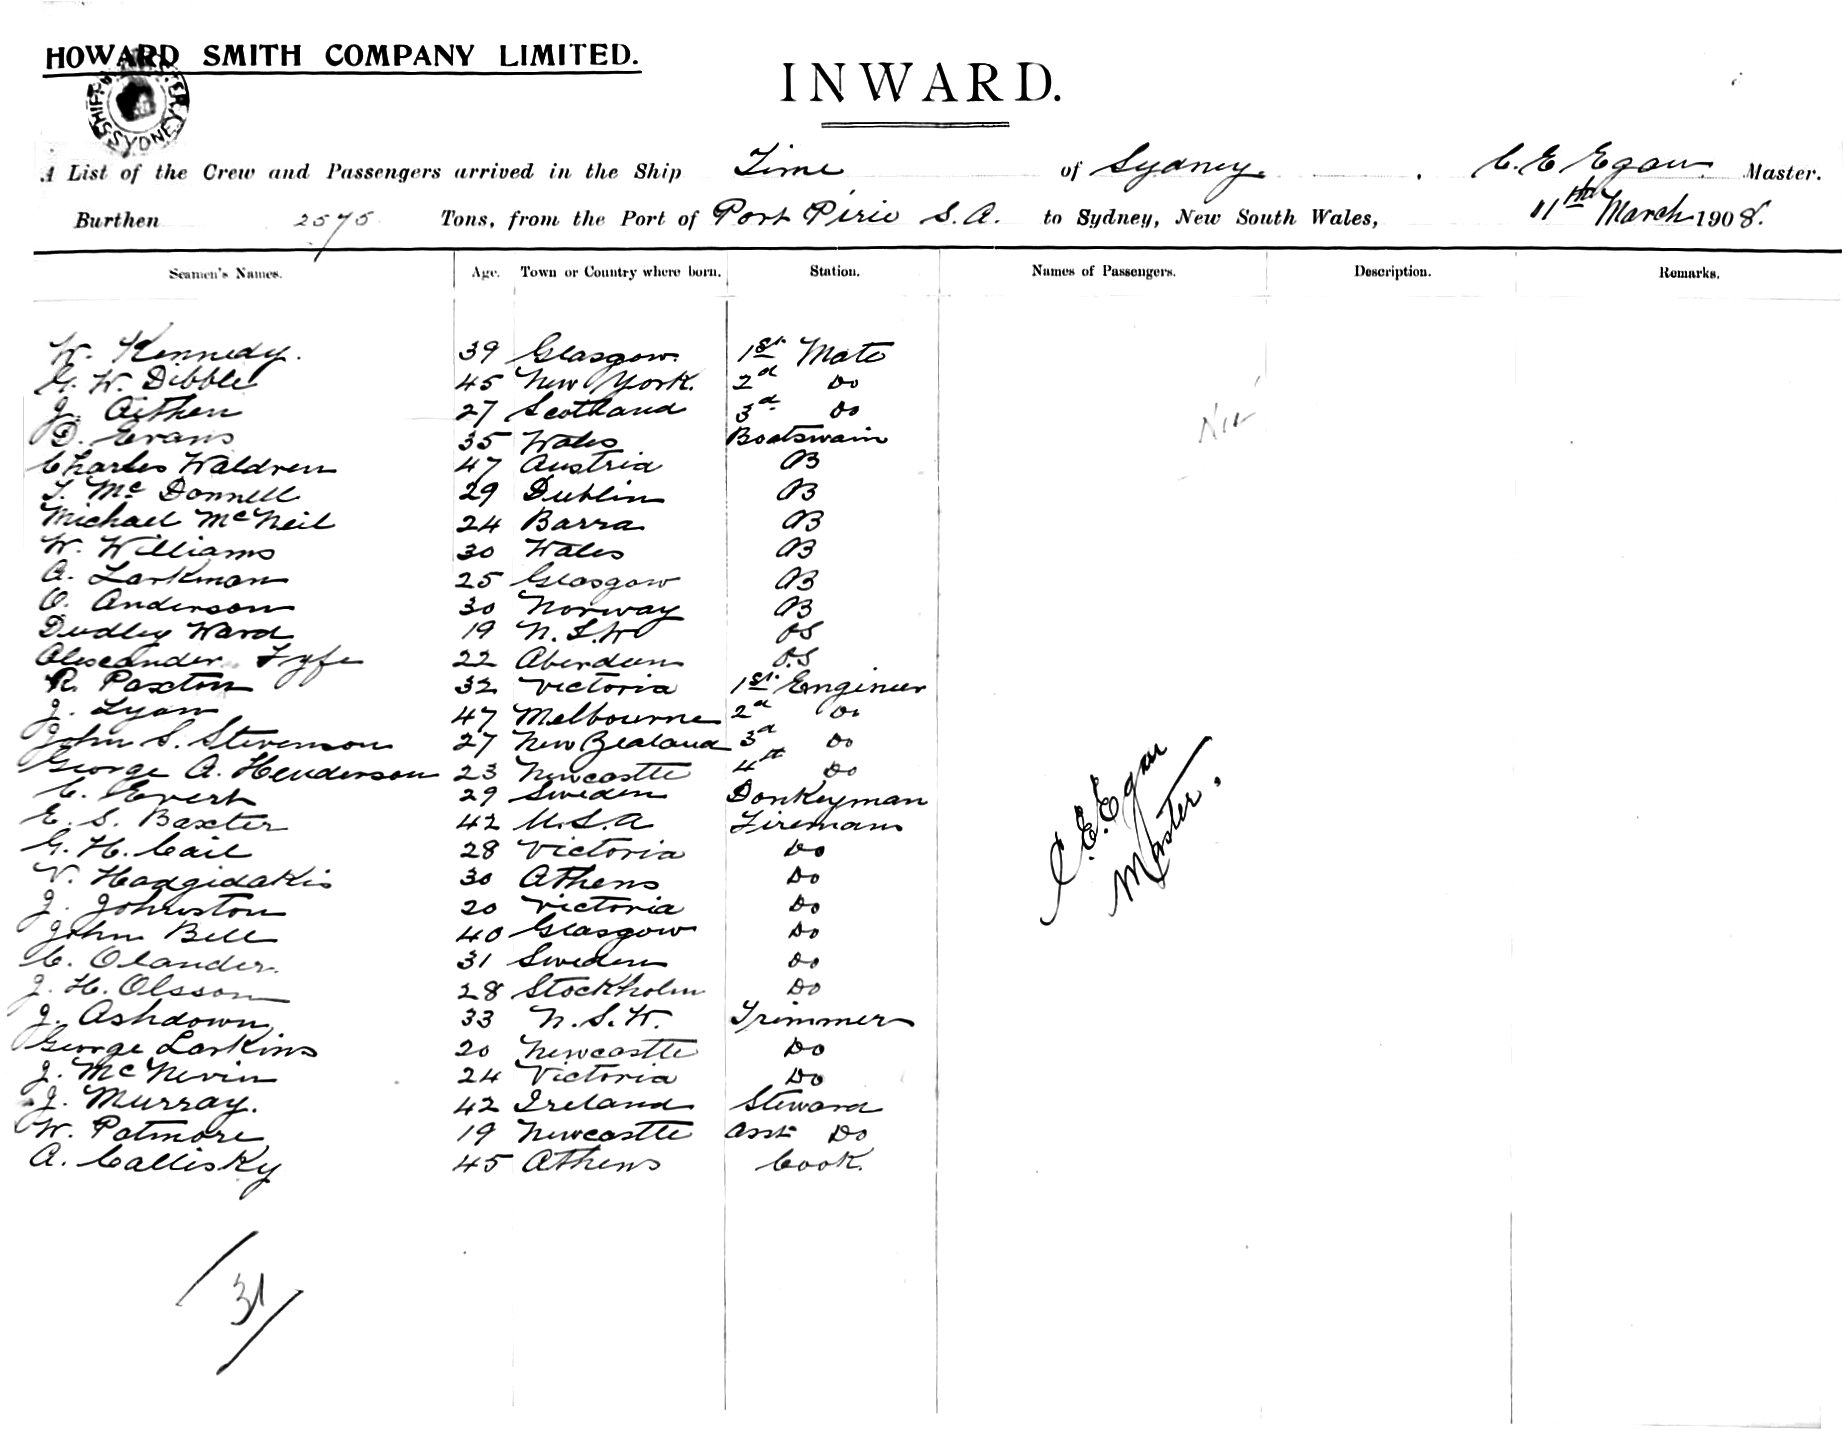 HOWARD SMITH COMPANY LIMITED.
SYDNEY
INWARD.
A List of the Crew and Passengers arrived in the Ship Time of Sydney. C. E Egan Master.
Burthen 2575 Tons, from the Port of Port Pirie S. A. to Sydney, New South Wales, 11th March 1908.
Seamen's Names. Age. Town or Country where born. Station. Names of Passengers. Description. Remarks.
W. Kennedy. 39 Glasgow. 1st Mate
G. W. Dibble 45 New York. 2d Do
J. Aitken 27 Scotland 3d Do
D. Evans 35 Wales Boatswain
Charles Waldren 47 Austria AB
T. Mc Donnell 29 Dublin AB
Michael McNeil 24 Barra AB
W. Williams 30 Wales AB
A. Larkman 25 Glasgow AB
O. Anderson 30 Norway AB
Dudley Ward 19 N.S.W OS
Alexander Fyfe 22 Aberdeen O.S
R. Paxton 32 Victoria 1st Engineer
J. Lyon 47 Melbourne 2d Do
John S. Stevenson 27 New Zealand 3d Do
George A. Henderson 23 Newcastle 4th Do
C. Evert 29 Sweden Donkeyman
E. S. Baxter 42 U.S.A Firemans
G. H. Cail 28 Victoria Do
V. Hadgidakis 30 Athens Do
J. Johnston 20 Victoria Do
John Bell 40 Glasgow Do
C. Olander. 31 Sweden Do
J. H. Olsson 28 Stockholm Do
J. Ashdown 33 N.S.W. Trimmer
George Larkins 20 Newcastle Do
J. McNevin 24 Victoria Do
J. Murray. 42 Ireland Steward
W. Patmore 19 Newcastle Asst Do
A. Callisky 45 Athens Cook.
Nil
C. E. Egan
Master.
31